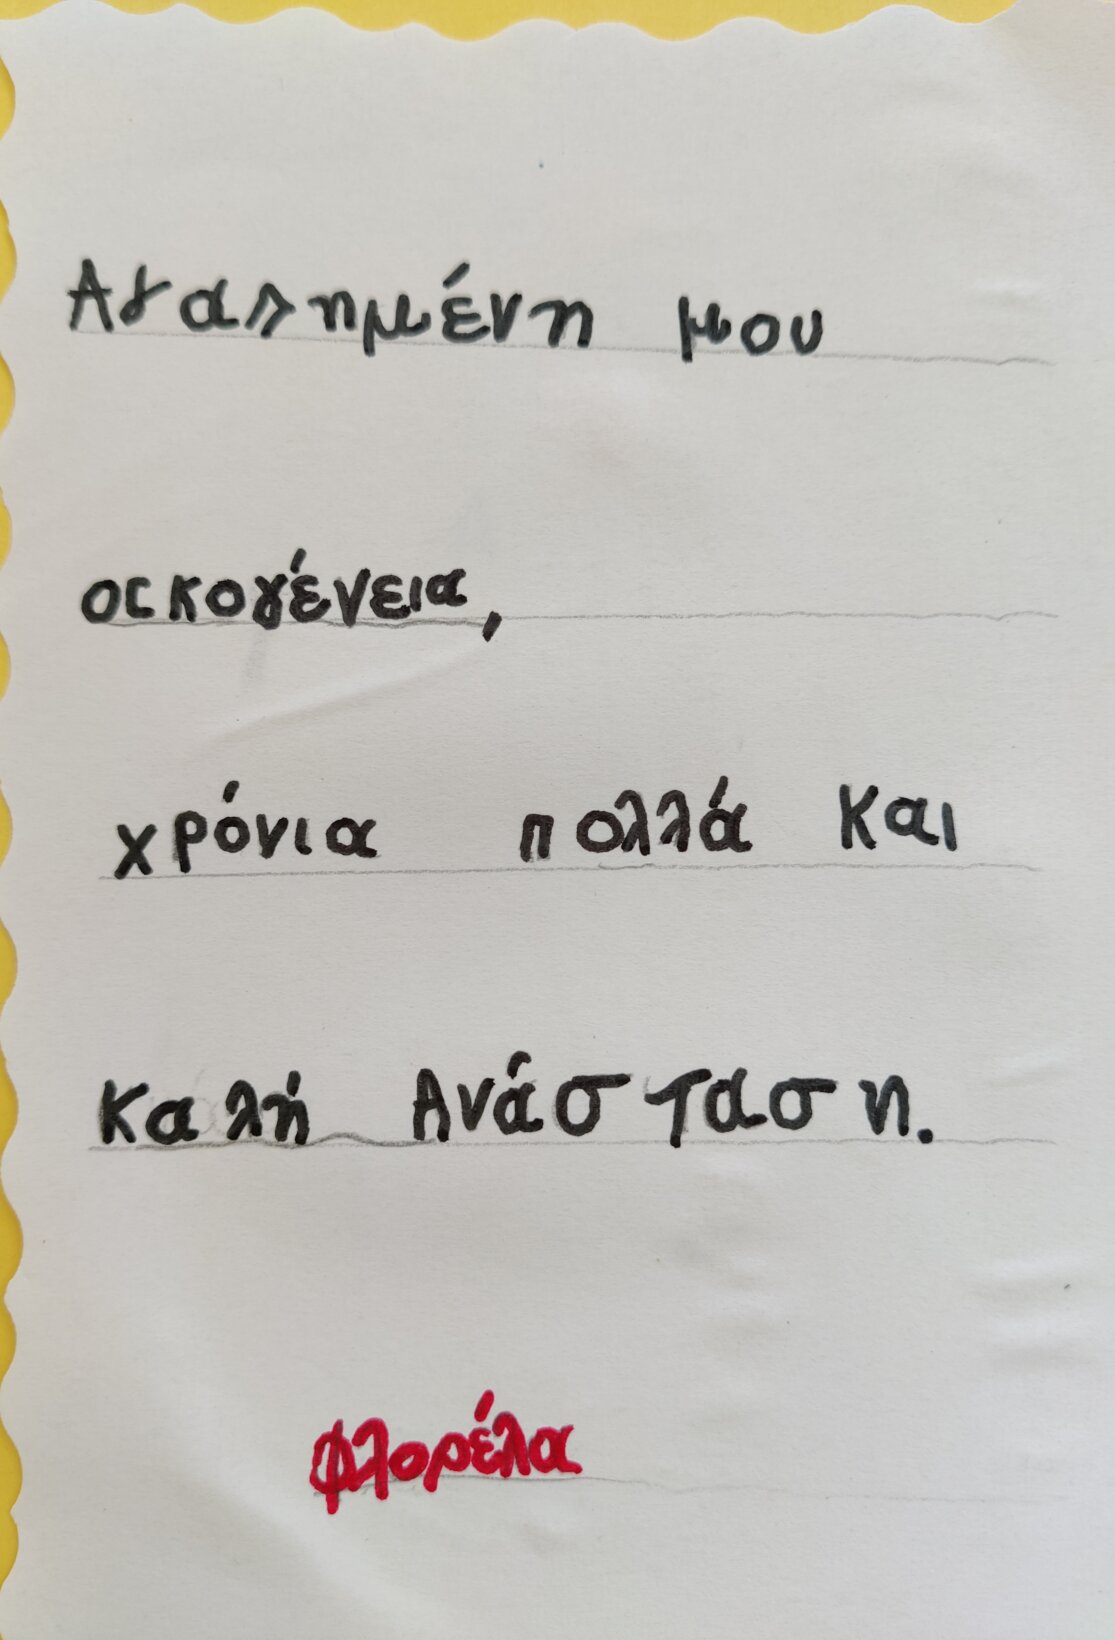 Αγαπημένη μου
οικογένεια,
χρόνια πολλά και
Καλή Ανάσταση.
Φλορέλα